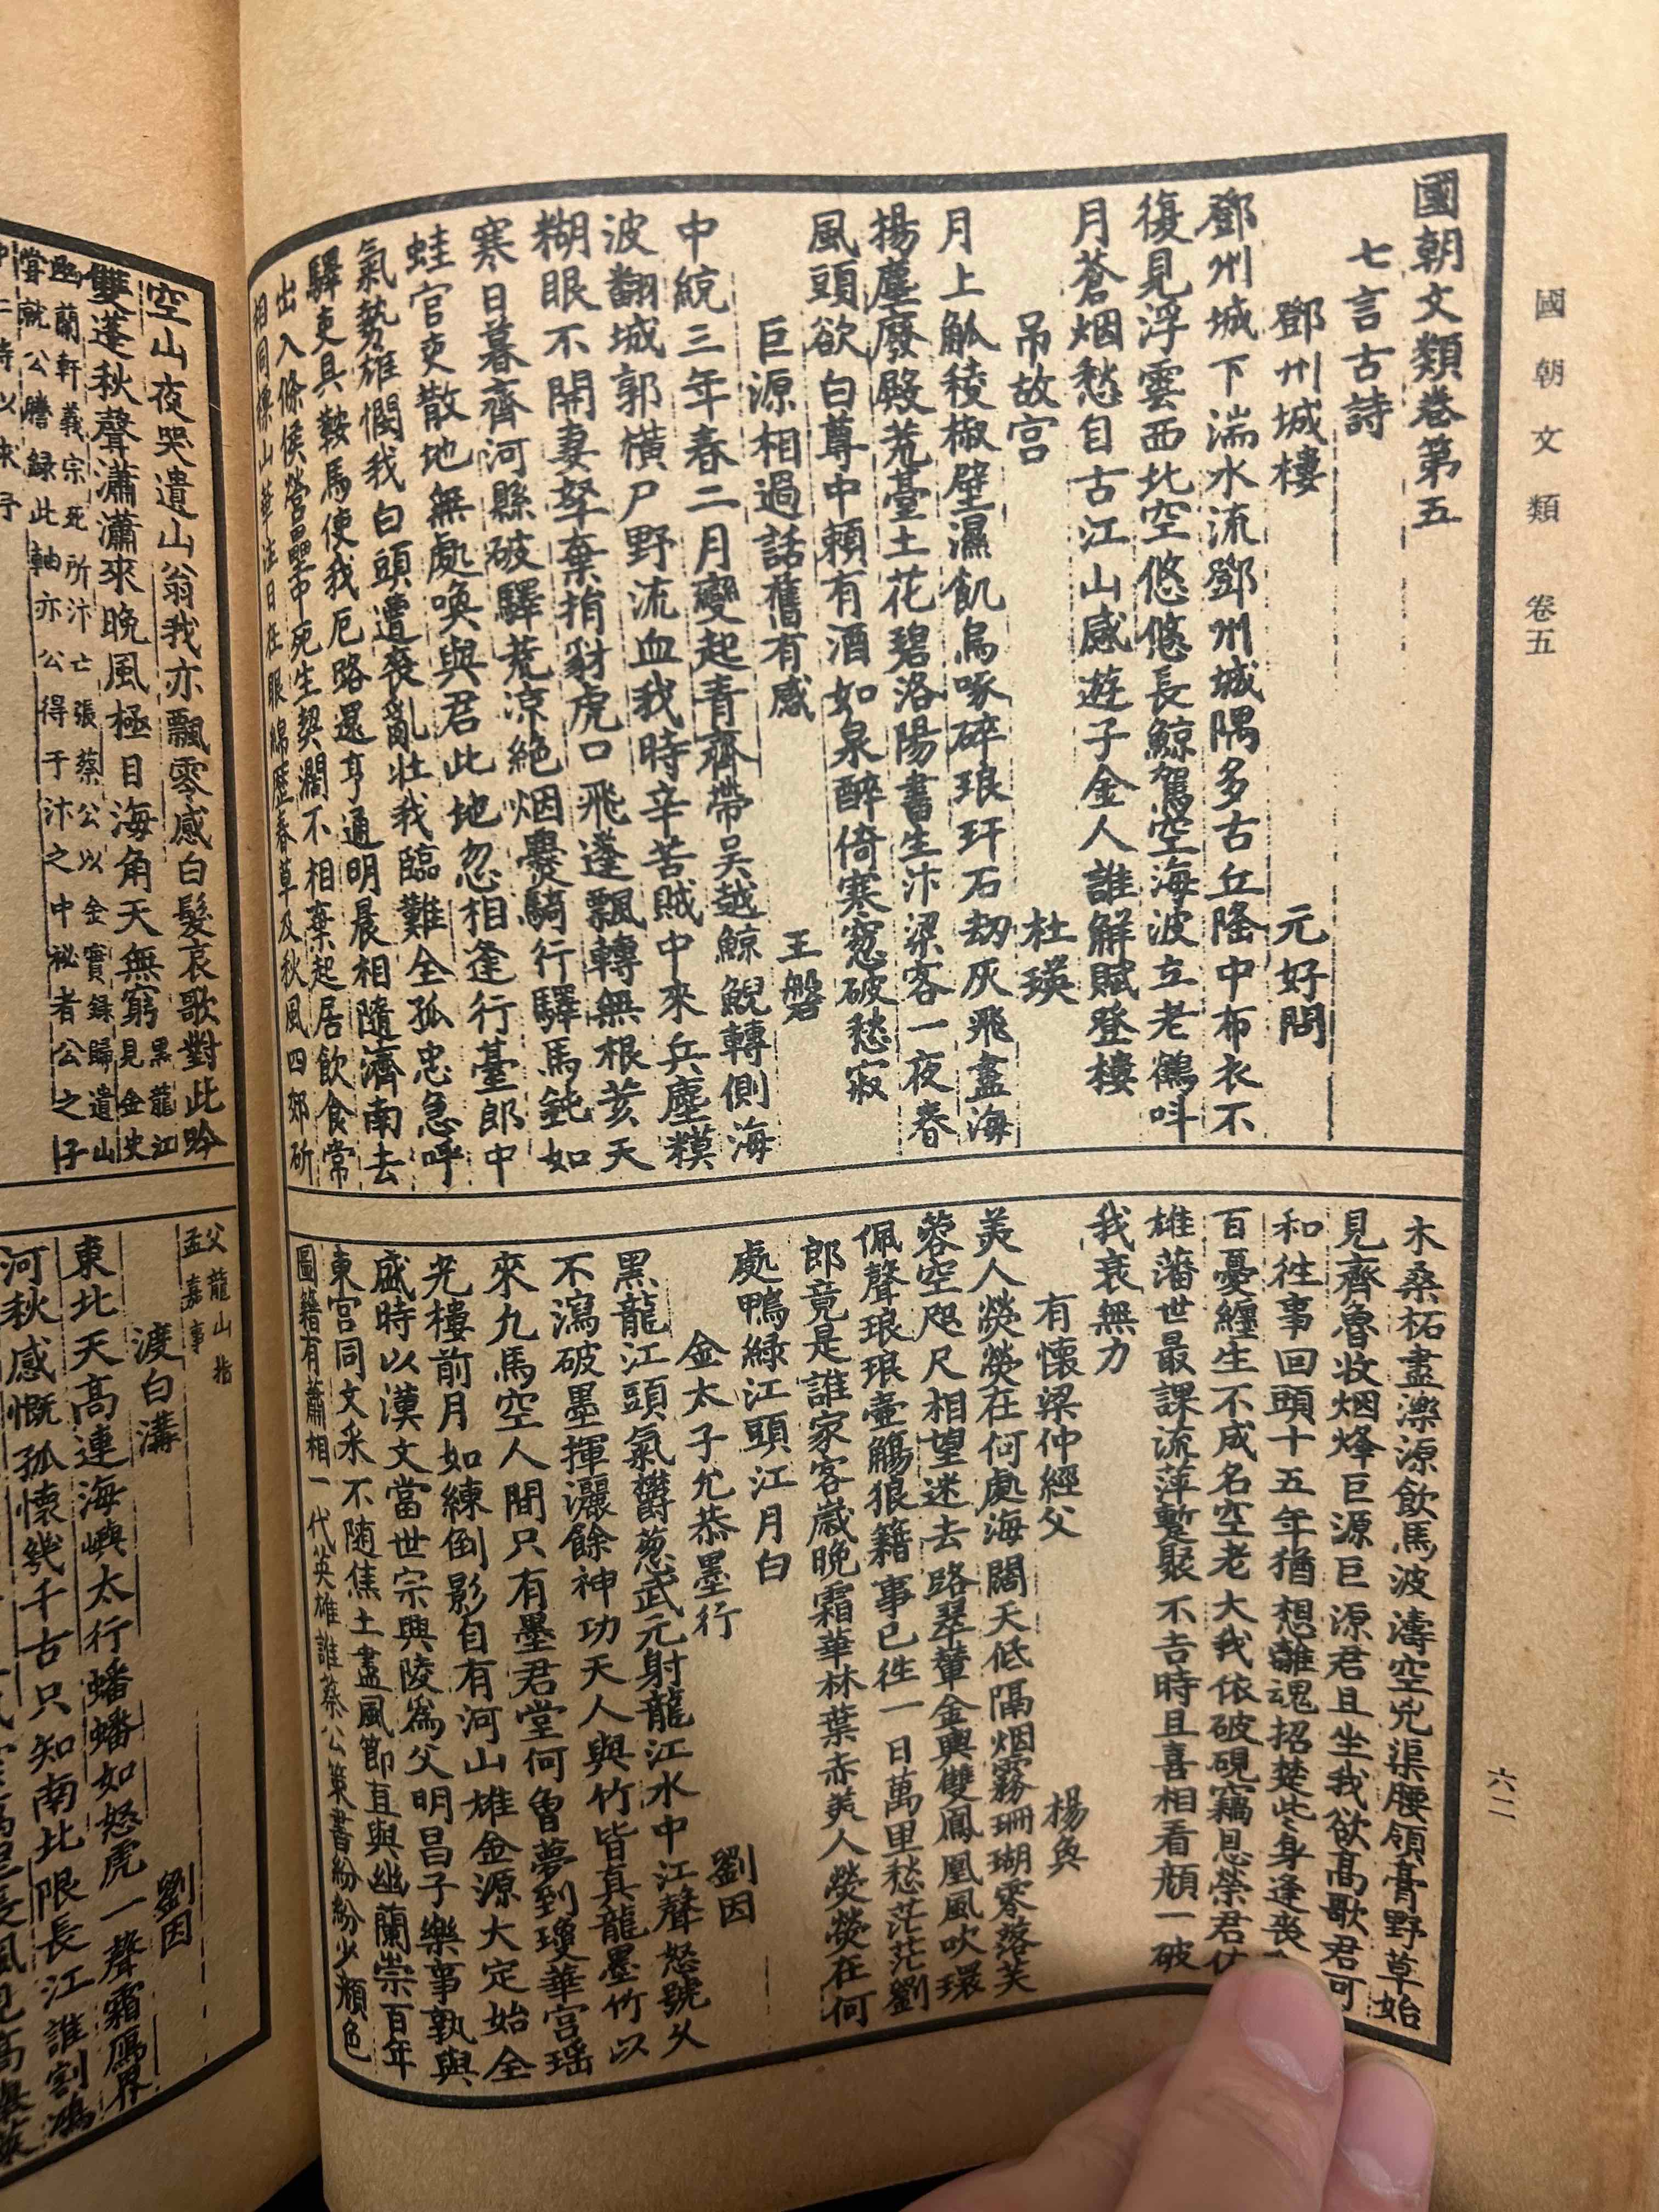 國朝文類　卷五
六二
國朝文類卷第五
七言古詩
鄧州城樓　元好問
鄧州城下湍水流鄧州城隅多古丘隆中布衣不
復見浮雲西北空悠悠長鯨駕空海波立老鶴呌
月蒼烟愁自古江山感遊子金人誰解賦登樓
吊故宫　杜瑛
月上觚稜椒壁濕飢烏啄碎琅玕石刼灰飛盡海
揚塵廢殿荒臺土花碧洛陽書生汴梁客一夜春
風頭欲白尊中頼有酒如泉醉倚寒窓破愁寂
巨源相過話舊有感　王磐
中統三年春二月變起青齊帶吳越鯨鯢轉側海
波翻城郭橫尸野流血我時辛苦賊中來兵塵糢
糊眼不開妻孥棄捐豺虎口飛蓬飄轉無根荄天
寒日暮齊河縣破驛荒涼絶烟爨騎行驛馬鈍如
蛙官吏散地無處喚與君此地忽相逢行臺郎中
氣勢雄憫我白頭遭喪亂壮我臨難全孤忠急呼
驛吏具鞍馬使我厄路還亨通明晨相隨濟南去
出入條侯營壘中死生契濶不相棄起居飲食常
相同標山華注日在眼綿歷春草及秋風四郊斫
木桑柘盡濼源飲馬波濤空兇渠腰領膏野草始
見齊魯收烟烽巨源巨源君且坐我欲高歌君可
和徃事回頭十五年猶想離魂招楚些身逢喪
百憂纏生不成名空老大我依破硯竊恩榮君
雄藩世最課流萍蹔聚不吉時且喜相看顔一破
我衰無力
有懷梁仲經父　楊奐
美人熒熒在何處海闊天低隔烟霧珊瑚零落芙
蓉空咫尺相望迷去路翠輦金輿雙鳳凰風吹環
佩聲琅琅壷觴狼籍事已徃一日萬里愁茫茫劉
郎竟是誰家客歲晚霜華林葉赤美人熒熒在何
處鴨緑江頭江月白
金太子允恭墨行　劉因
黑龍江頭氣欝葱武元射龍江水中江聲怒號久
不瀉破墨揮灑餘神功天人與竹皆真龍墨竹以
來九馬空人間只有墨君堂何曾夢到瓊華宮瑶
光樓前月如練倒影自有河山雄金源大定始全
盛時以漢文當世宗興陵爲父明昌子樂事孰與
東宫同文采不随焦土盡風節直與幽蘭崇百年
圖籍有蕭相一代英雄誰蔡公策書紛紛少顔色
空山夜哭遺山翁我亦飄零感白髮哀歌對此吟
雙蓬秋聲瀟瀟來晚風極目海角天無窮黑龍江見金史
幽蘭軒義宗死所汴亡張蔡公以金實録歸遺山
嘗就公謄録此軸亦公得于汴之中祕者公之子
父龍山
孟嘉事
渡白溝　劉因
東北天高連海嶼太行蟠蟠如怒虎一聲霜鴈界
河秋感慨孤懷幾千古只知南北限長江誰割鴻